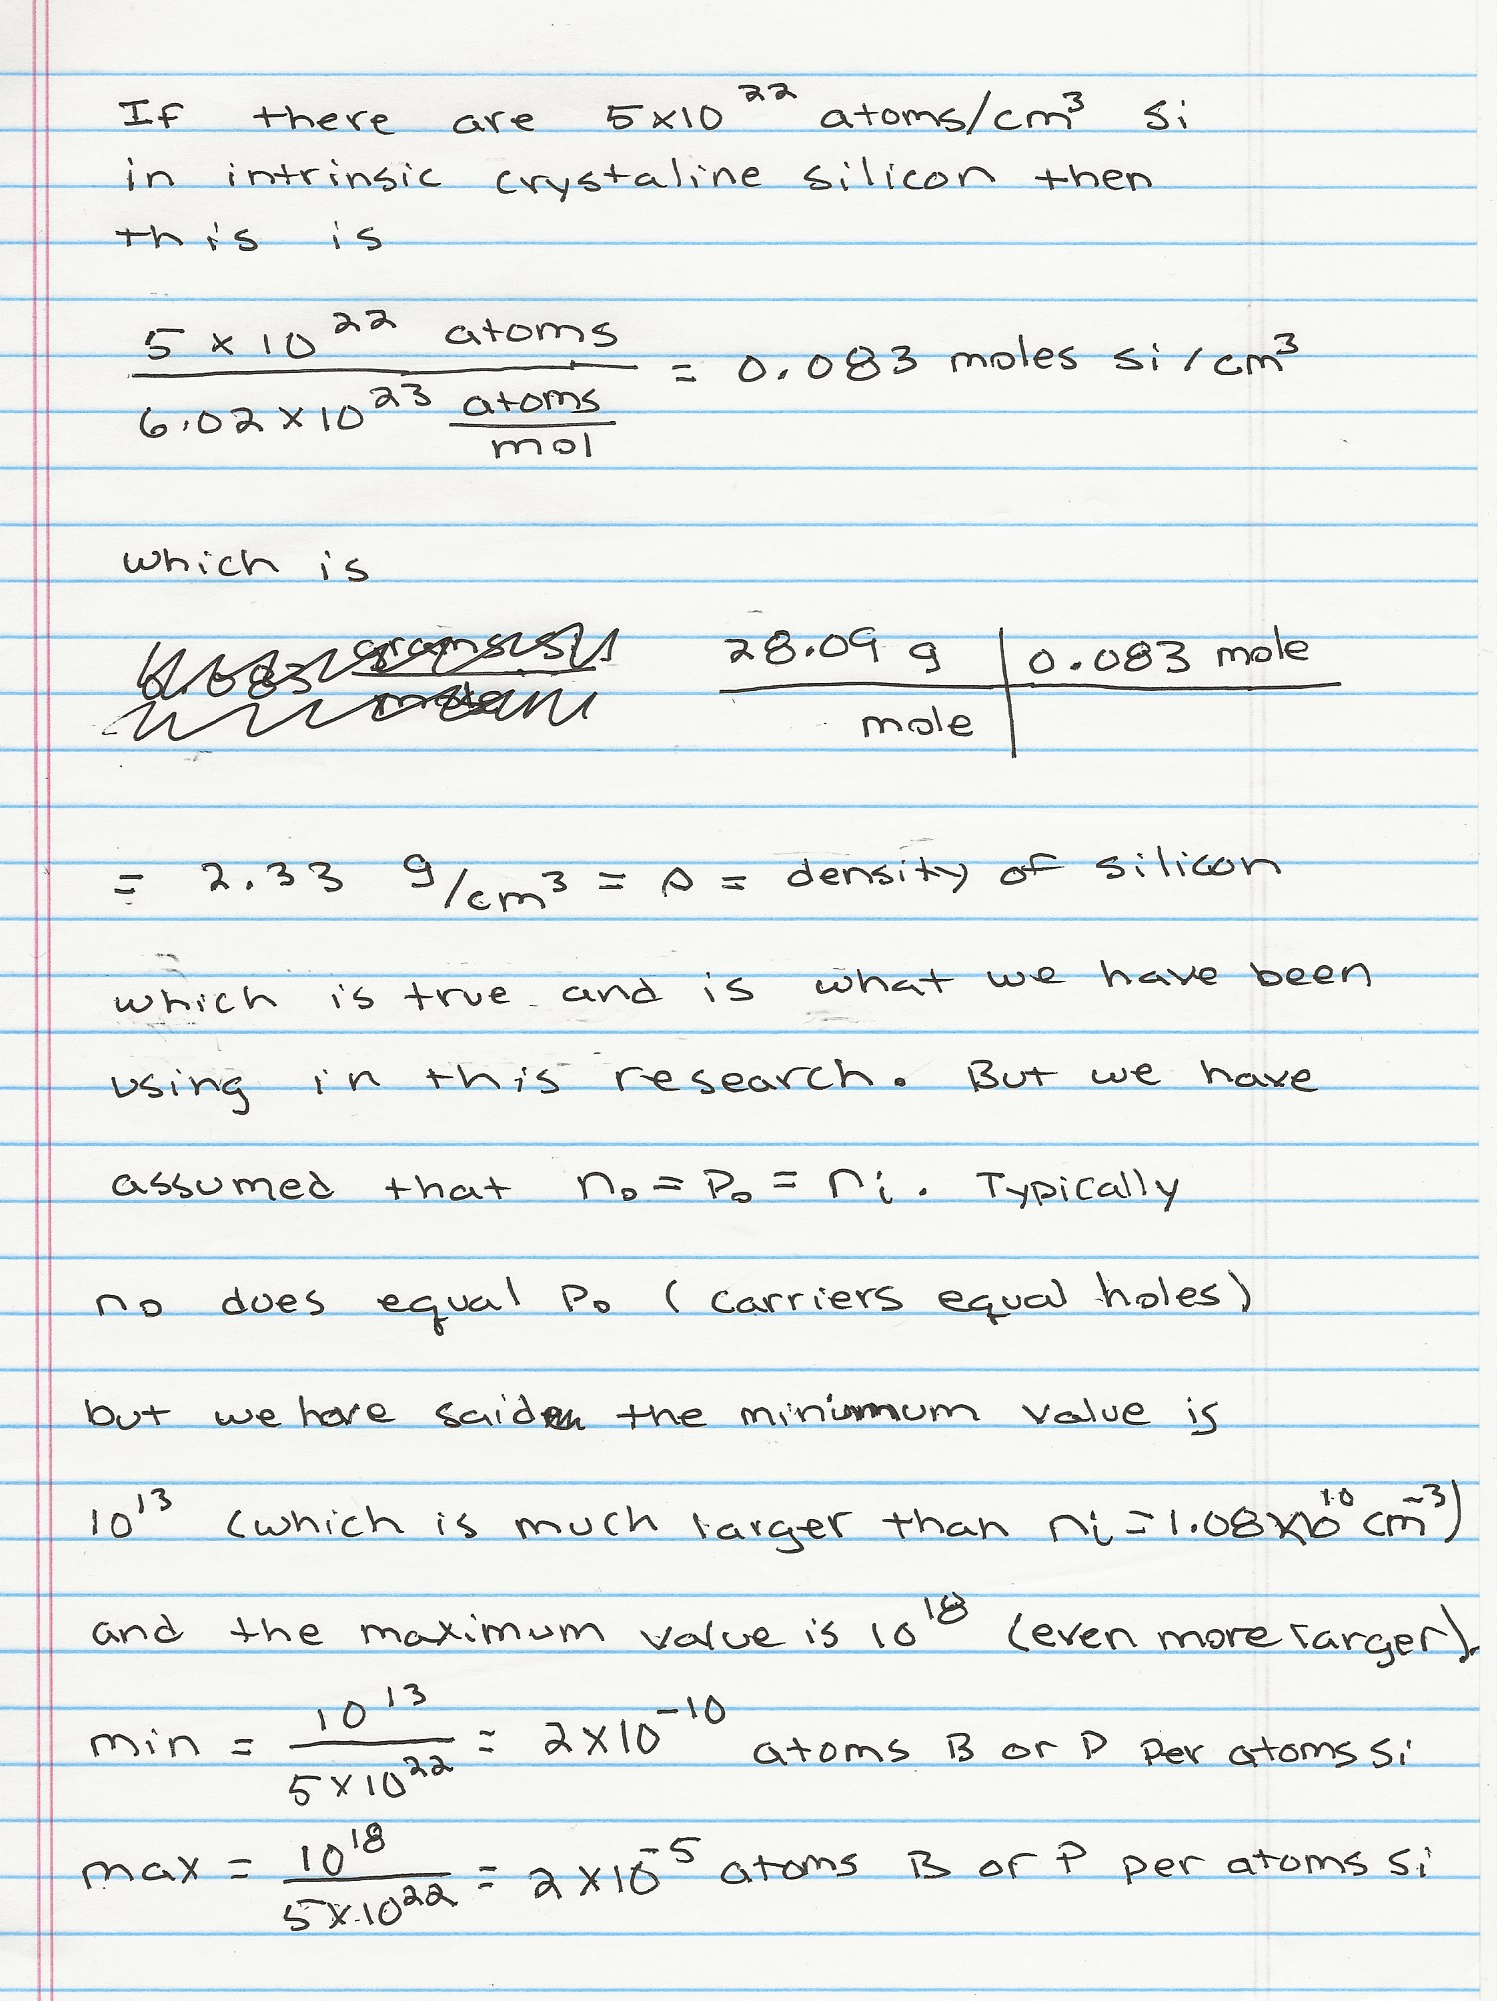 If there are 5×10²² atoms/cm³ Si
in intrinsic crystaline silicon then
this is
5 × 10²² atoms
= 0.083 moles Si/cm³
6.02 × 10²³ atoms
mol
which is
28.09 g | 0.083 mole
mole
= 2.33 g/cm³ = ρ = density of silicon
which is true and is what we have been
using in this research. But we have
assumed that n₀ = P₀ = nᵢ. Typically
n₀ does equal P₀ (carriers equal holes)
but we have said the minimum value is
10¹³ (which is much larger than nᵢ = 1.08×10¹⁰ cm⁻³)
and the maximum value is 10¹⁸ (even more larger).
min = 10¹³ / 5×10²² = 2×10⁻¹⁰ atoms B or P per atoms Si
max = 10¹⁸ / 5×10²² = 2×10⁻⁵ atoms B or P per atoms Si